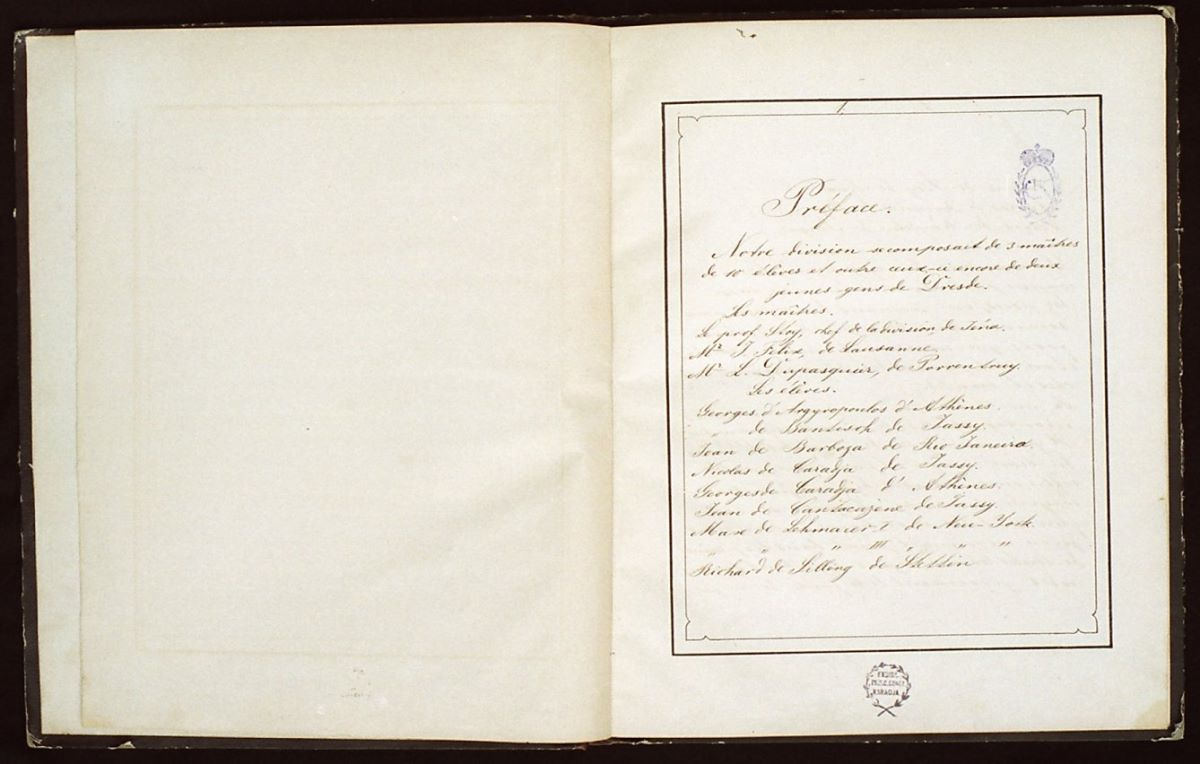 1.
Préface.
Notre division se composait de 3 maîtres
de 10 élèves et outre ceux-ci encore de deux
jeunes gens de Dresde.
Les maîtres.
Le prof. Stoy, chef de la division, de Jéna.
Mr J. Felix, de Lausanne.
Mr L. Dupasquier, de Porrentruy.
Les élèves.
Georges d'Argyropoulos d'Athènes.
de Bantisch de Jassy.
Jean de Barboza de Rio Janeiro.
Nicolas de Caradja de Jassy.
Georges de Caradja d'Athènes.
Jean de Cantacazene de Jassy.
Max de Lehmaier I de New-York.
" " " III " " "
Richard de Silling de Stettin
KARADJA